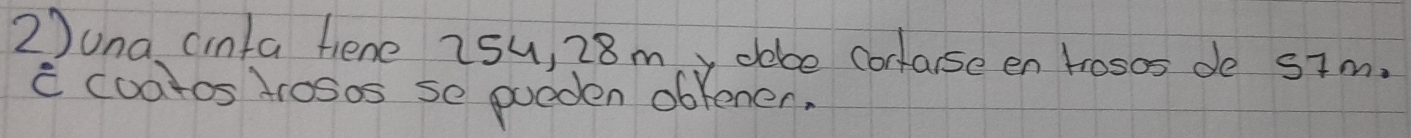 2) una cinta tiene 254,28 m y debe cortarse en trosos de 57m.
¿ coatos trosos se pueden obtener.